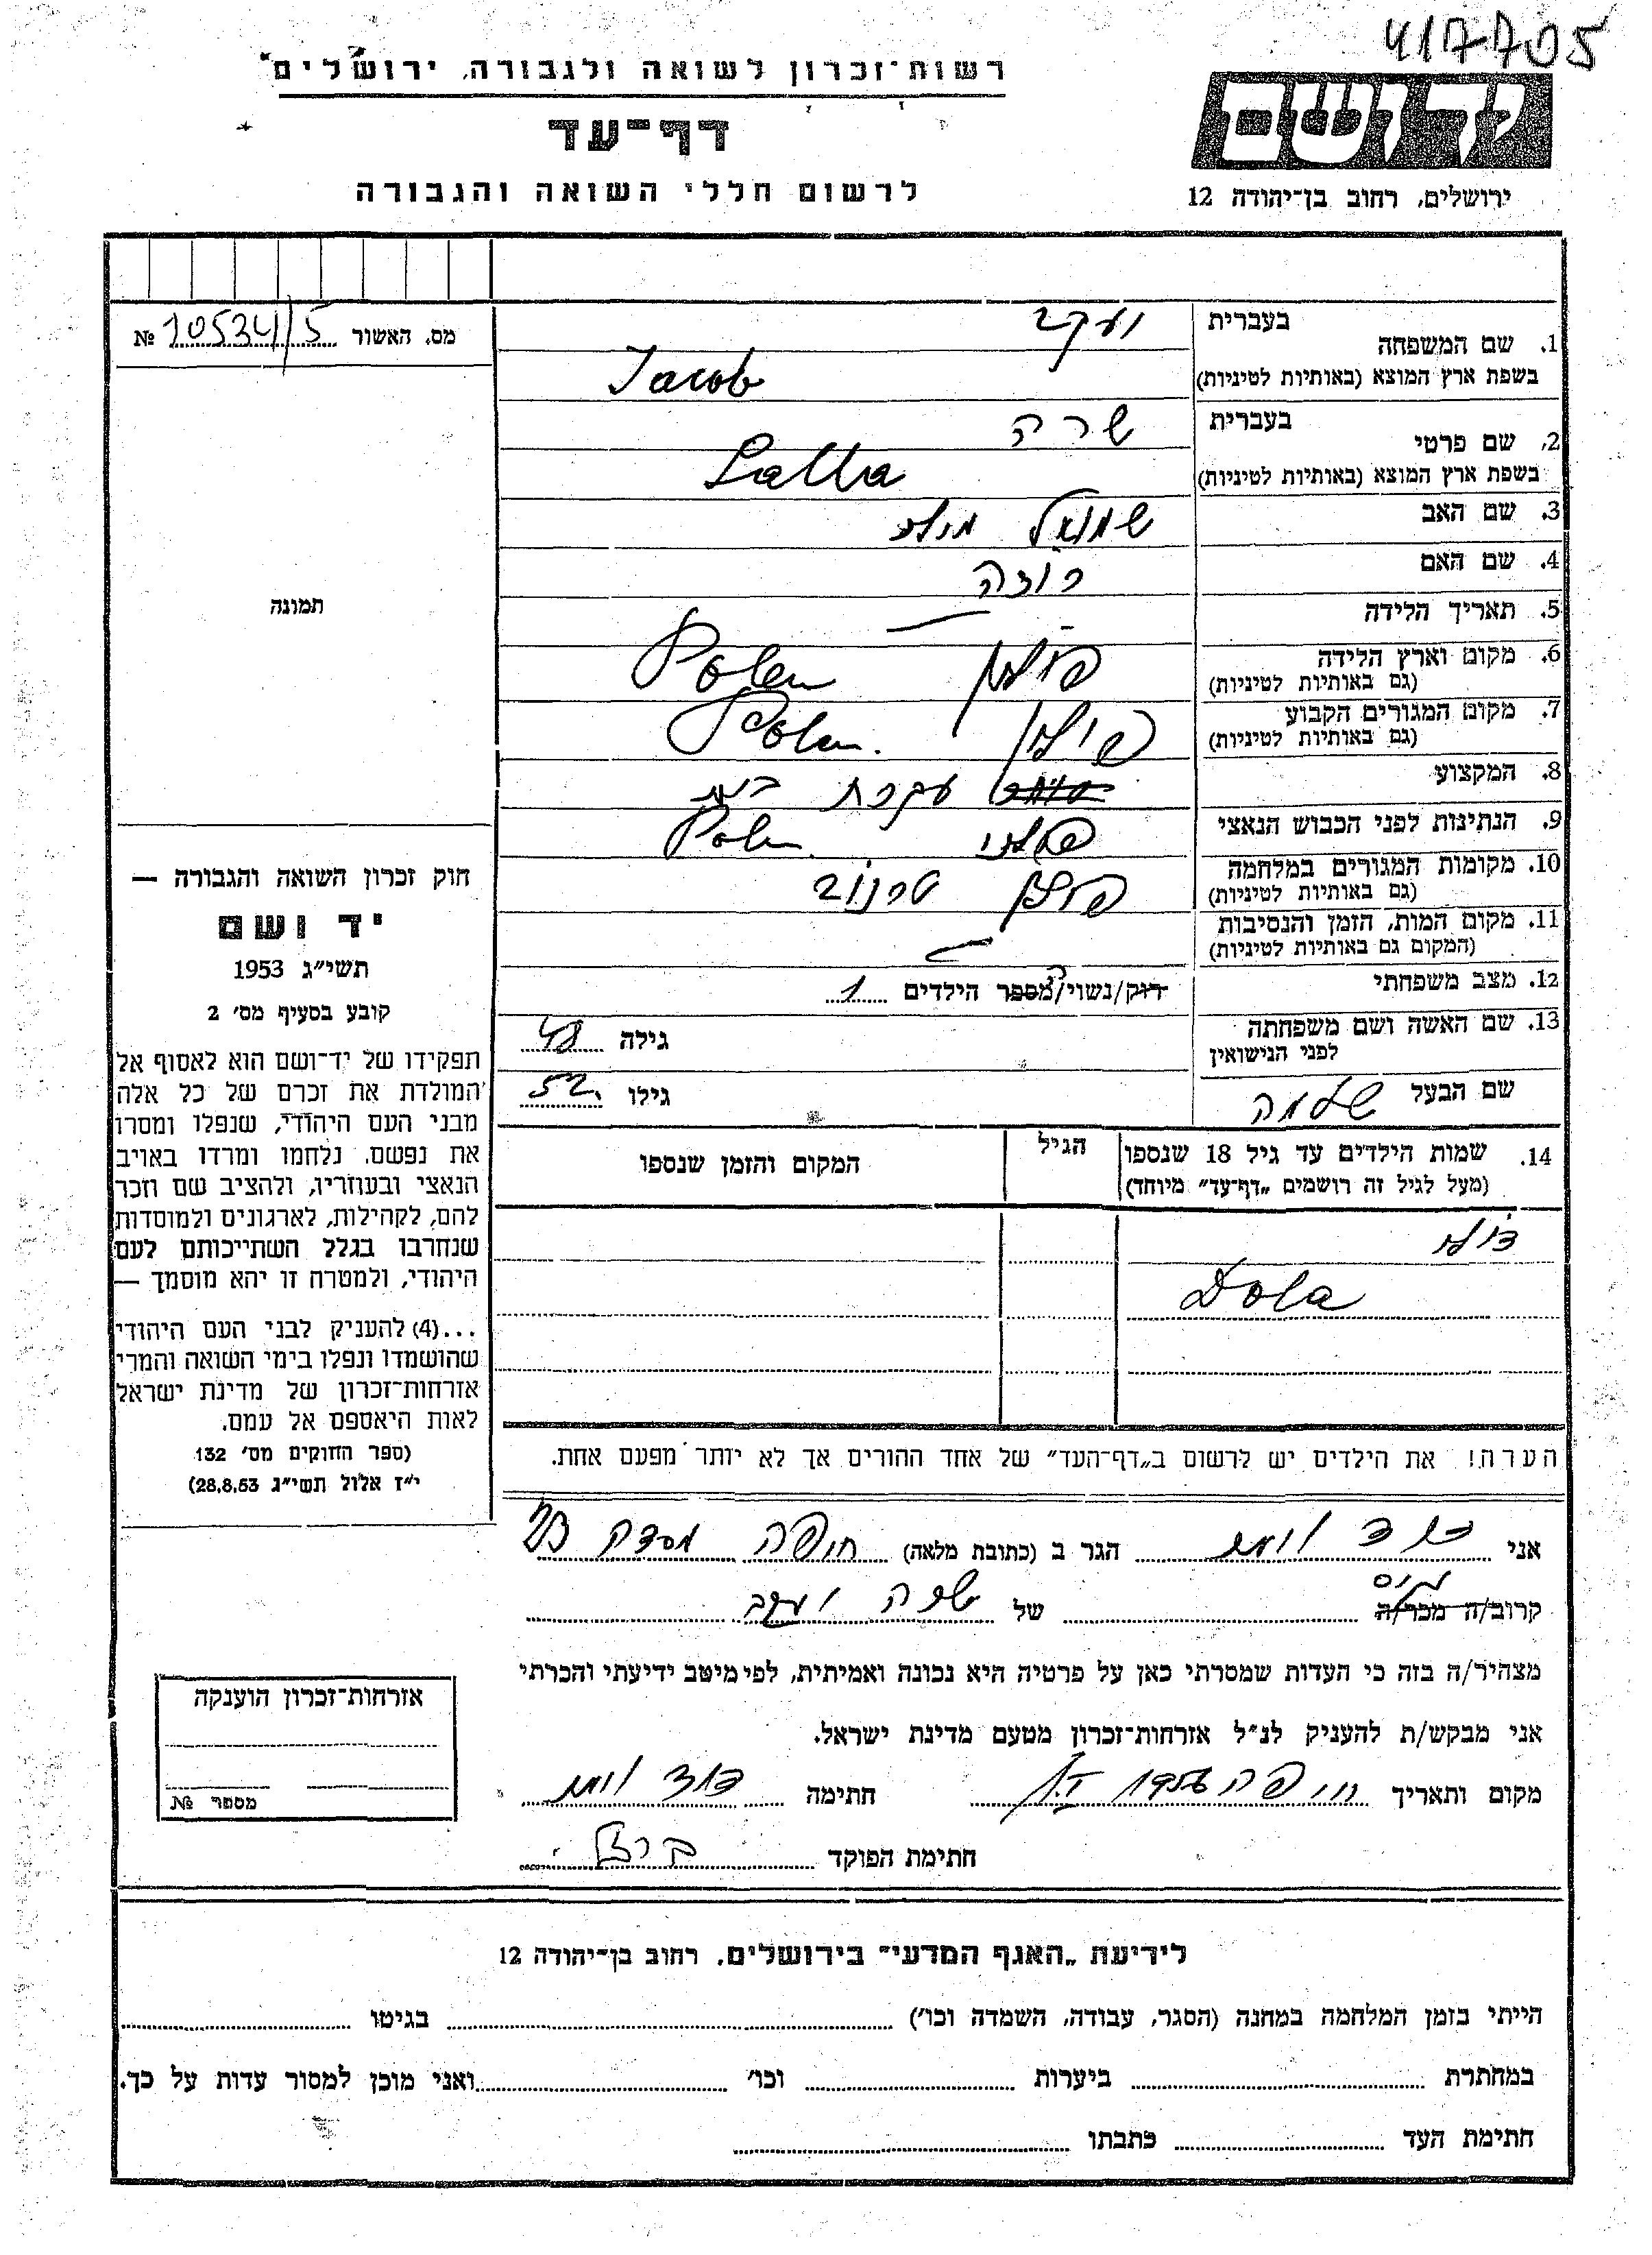 417705
רשות־זכרון לשואה ולגבורה, ירושלים
דף־עד
לרשום חללי השואה והגבורה
יד ושם
ירושלים, רחוב בן־יהודה 12
מס. האשור 10534/5 №
1. שם המשפחה
בעברית יעקב
בשפת ארץ המוצא (באותיות לטיניות) Jacob
2. שם פרטי
בעברית שרה
בשפת ארץ המוצא (באותיות לטיניות) Salla
3. שם האב שמואל
4. שם האם רוזה
5. תאריך הלידה —
6. מקום וארץ הלידה פולין Polen
(גם באותיות לטיניות)
7. מקום המגורים הקבוע פולין Polen.
(גם באותיות לטיניות)
8. המקצוע עקרת בית
9. הנתינות לפני הכבוש הנאצי פולני Polen
10. מקומות המגורים במלחמה פולין טרנוב
(גם באותיות לטיניות)
11. מקום המות, הזמן והנסיבות —
(המקום גם באותיות לטיניות)
12. מצב משפחתי רוק/נשוי/ה מספר הילדים 1
13. שם האשה ושם משפחתה
לפני הנישואין
גילה 48
שם הבעל שלמה גילו 52
14. שמות הילדים עד גיל 18 שנספו
(מעל לגיל זה רושמים „דף־עד״ מיוחד)
הגיל
המקום והזמן שנספו
דולה
Dola
הערה! את הילדים יש לרשום ב„דף־העד״ של אחד ההורים אך לא יותר מפעם אחת.
תמונה
חוק זכרון השואה והגבורה —
יד ושם
תשי״ג 1953
קובע בסעיף מס׳ 2
תפקידו של יד־ושם הוא לאסוף אל
המולדת את זכרם של כל אלה
מבני העם היהודי, שנפלו ומסרו
את נפשם, נלחמו ומרדו באויב
הנאצי ובעוזריו, ולהציב שם וזכר
להם, לקהילות, לארגונים ולמוסדות
שנחרבו בגלל השתייכותם לעם
היהודי, ולמטרה זו יהא מוסמך —
...(4) להעניק לבני העם היהודי
שהושמדו ונפלו בימי השואה והמרי
אזרחות־זכרון של מדינת ישראל
לאות היאספם אל עמם.
(ספר החוקים מס׳ 132
י״ז אלול תשי״ג 28.8.53)
אני הגר ב (כתובת מלאה) חיפה
קרוב/ה מכר/ה של שרה יעקב
מצהיר/ה בזה כי העדות שמסרתי כאן על פרטיה היא נכונה ואמיתית, לפי מיטב ידיעתי והכרתי
אני מבקש/ת להעניק לנ״ל אזרחות־זכרון מטעם מדינת ישראל.
מקום ותאריך חיפה חתימה
חתימת הפוקד
אזרחות־זכרון הוענקה
מספר №
לידיעת „האגף המדעי״ בירושלים, רחוב בן־יהודה 12
הייתי בזמן המלחמה במחנה (הסגר, עבודה, השמדה וכו׳) בגיטו
במחתרת ביערות וכו׳ ואני מוכן למסור עדות על כך.
חתימת העד כתבתו